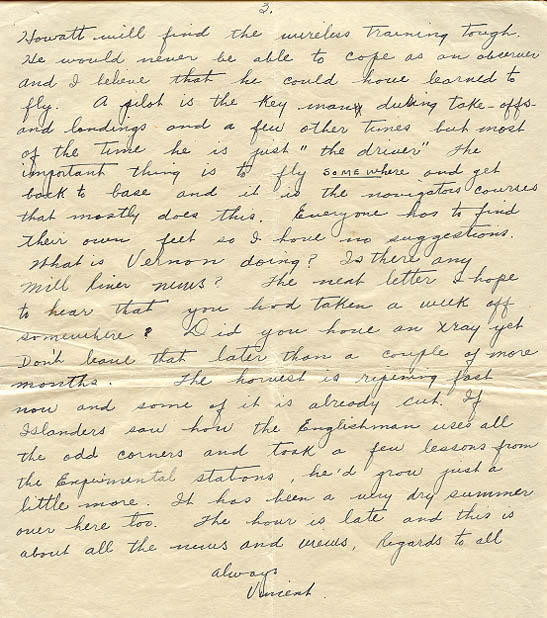 3.
Howatt will find the wireless training tough.
He would never be able to cope as an observer
and I believe that he could have learned to
fly. A pilot is the key man during take-offs
and landings and a few other times but most
of the time he is just "the driver" The
important thing is to fly somewhere and get
back to base and it is the navigators courses
that mostly does this. Everyone has to find
their own feet so I have no suggestions.
What is Vernon doing? Is there any
Mill liner news? The next letter I hope
to hear that you had taken a week off
somewhere? Did you have an xray yet
Don't leave that later than a couple of more
months. The harvest is ripening fast
now and some of it is already cut. If
Islanders saw how the Englishman uses all
the odd corners and took a few lessons from
the Expirimental stations, he'd grow just a
little more. It has been a very dry summer
over here too. The hour is late and this is
about all the news and views. Regards to all
always
Vincent.